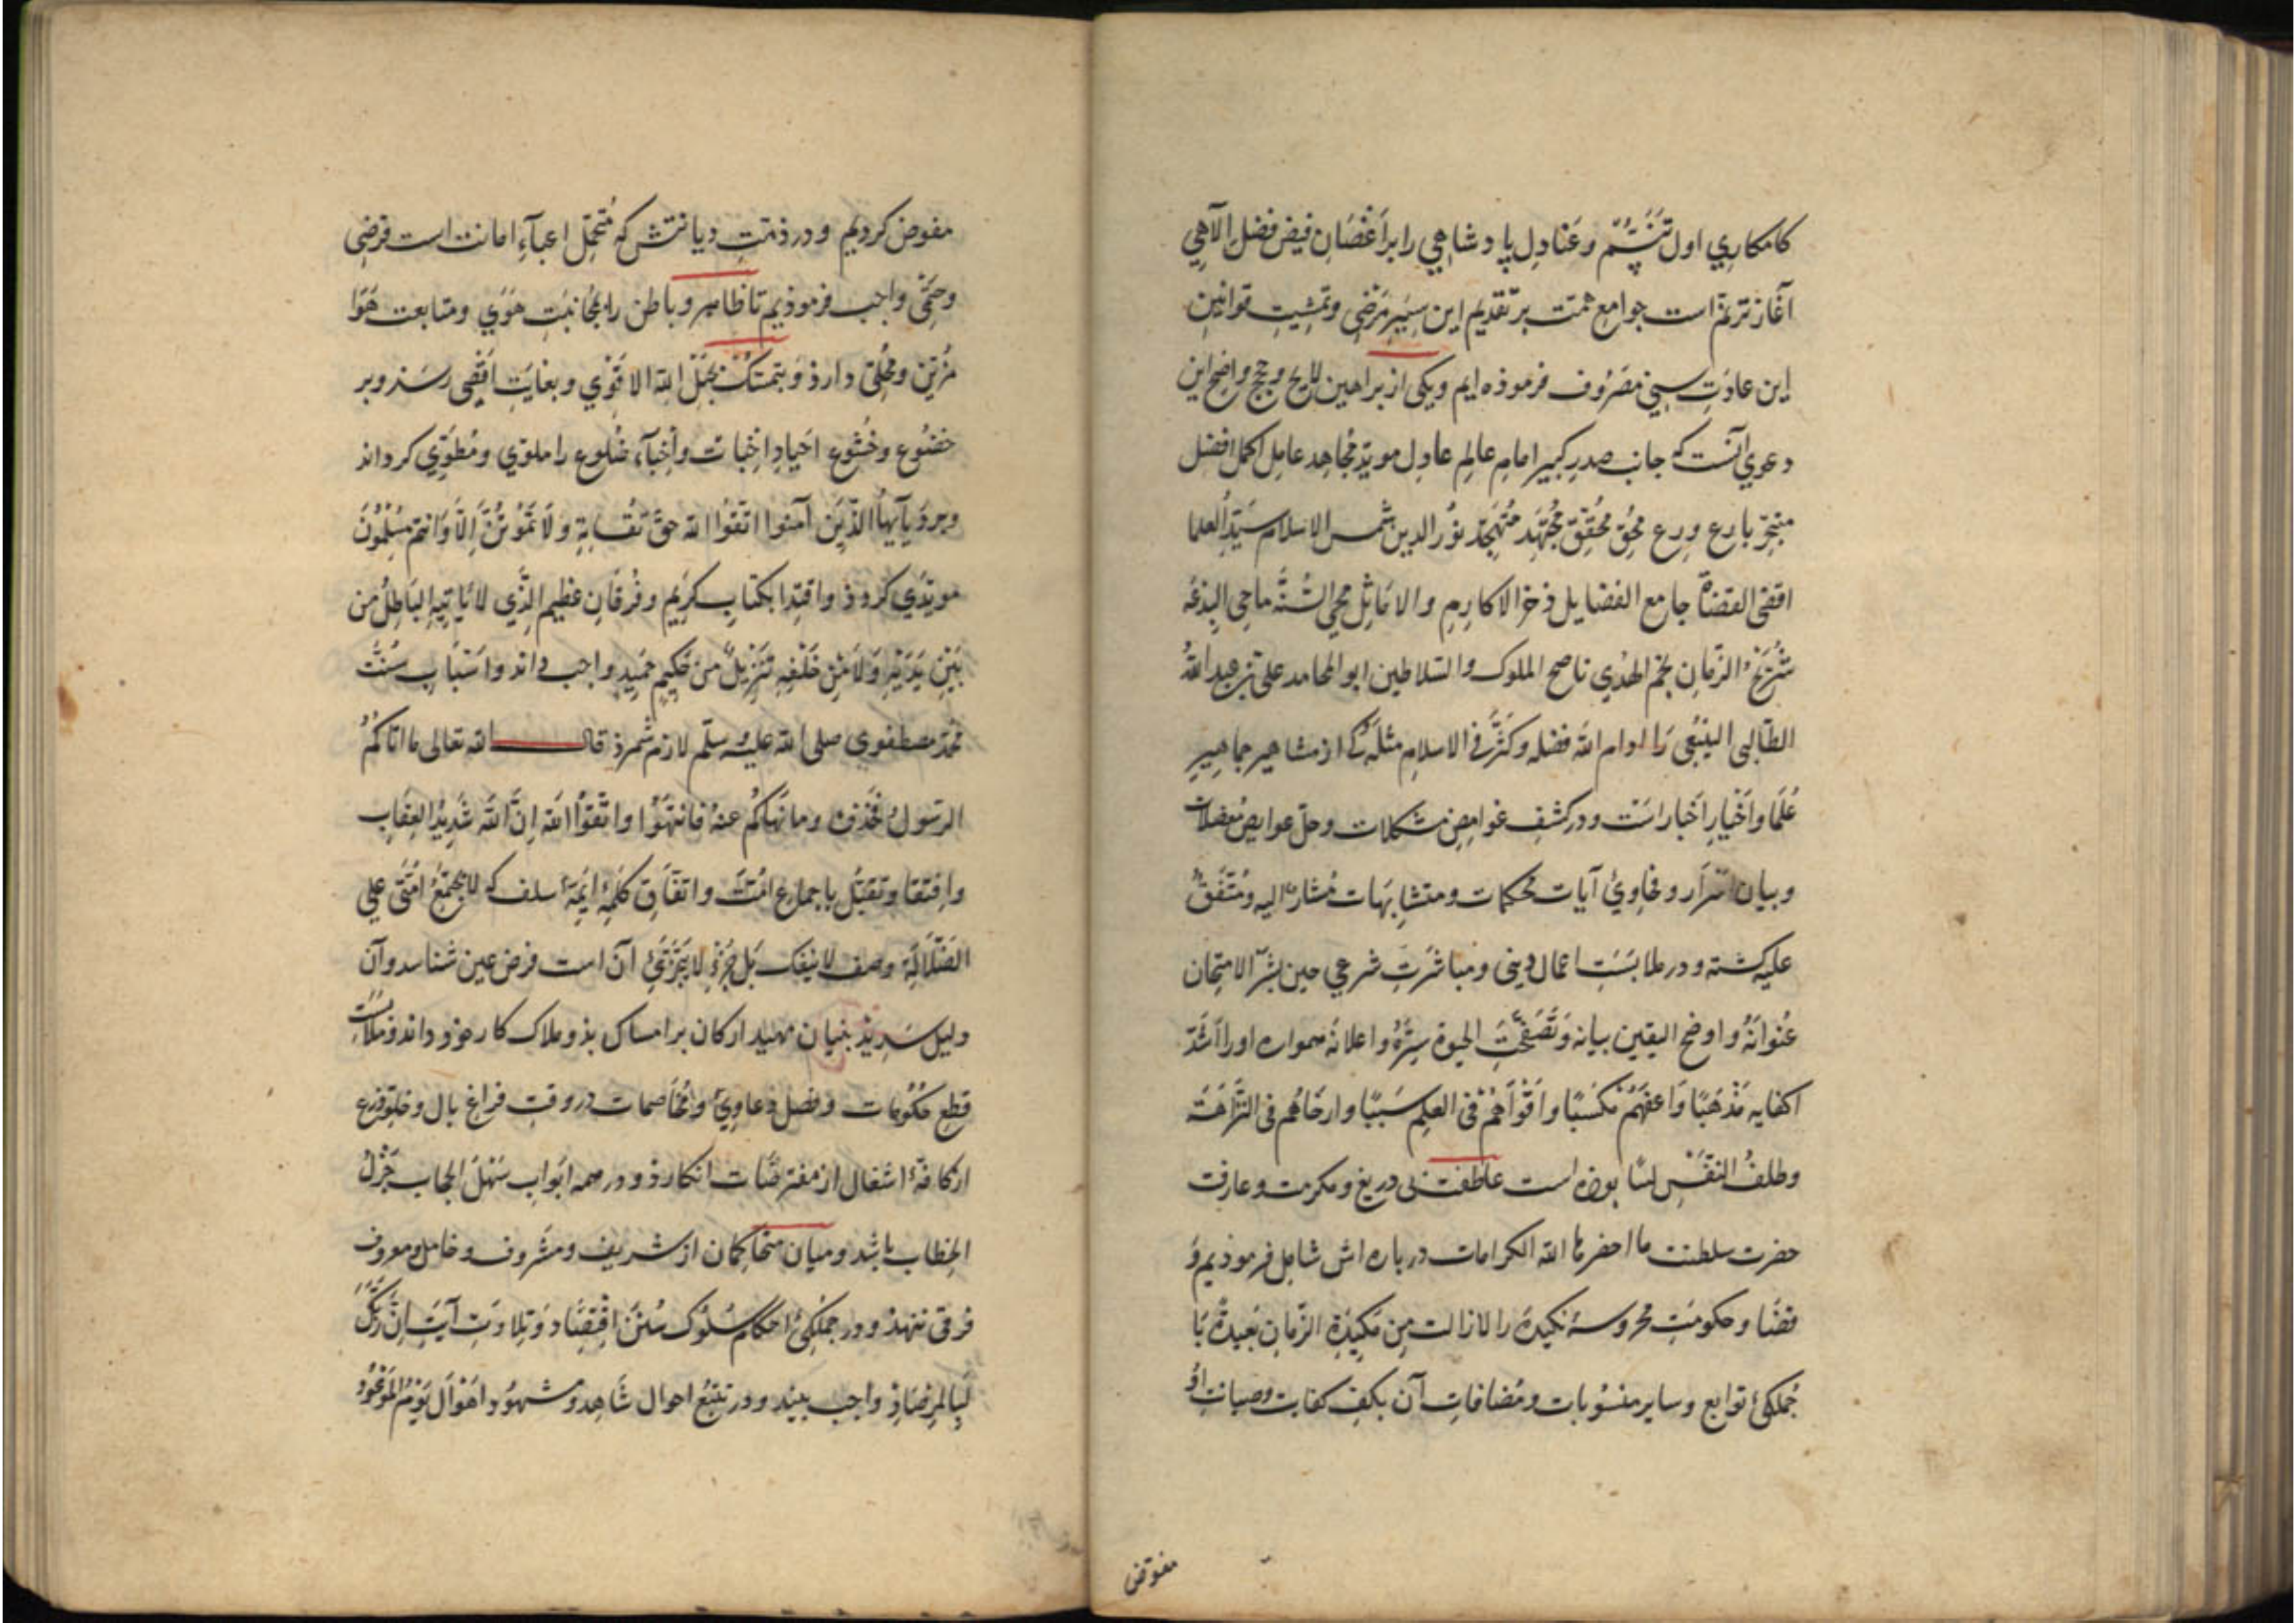 کامکاری اول و عنادل پادشاهی را بر اغصان فیض فضل الآهی
آغاز ترنم است جوامع همت بر تقدیم این سیر مرضی و تمشیت قوانین
این عادت سنی مصروف فرموذه ایم و یکی از براهین لایح و حجج واضح این
دعوی آنست که جانب صدر کبیر امام عالم عادل موید مجاهد عامل اکمل افضل
بارع ورع محق محقق مجتهد متهجد نور الدین شمس الاسلام سید العلما
اقضی القضاة جامع الفضایل فخر الاکارم والاماثل محی السنة ماحی البدعه
شریح الزمان نجم الهدی ناصح الملوک والسلاطین ابو المحامد علی بن عبد الله
الطالبی را ادام الله فضله وکثر فی الاسلام مثله که از مشاهیر جماهیر
علما و اخیار اخبار است و در کشف غوامض مشکلات و حل عوایص معضلات
و بیان اسرار و فحاوی آیات محکمات و متشابهات مشار الیه و متفق
علیه کشته و در ملابست اعمال دینی و مباشرت شرعی حین الامتحان
عنوانه و اوضح الیقین بیانه و تصفحت الحیوة سره و اعلانه او را اشد
اکفایه مذهبا و اعفهم مکسبا و اقواهم فی العلم سببا و ارخاهم فی النزاهة
وظلف النفس لببا بوذه است عاطفت بی دریغ و مکرمت و عارفت
حضرت سلطنت ما احضرها الله الکرامات درباره اش شامل فرموذیم و
قضا و حکومت محروسه نکیده را لا زالت من مکیدة الزمان بعیدة با
جملکی توابع و سایر منسوبات و مضافات آن بکف کفایت و صیانت او
مفوض
مفوض کردیم و در ذمت دیانتش که متحمل اعباء امانت است فرضی
و حتمی واجب فرموذیم تا ظاهر و باطن را بمجانبت هوی و متابعت
مزین و محلی دارذ و بتمسک بحبل الله الاقوی و بغایت اقصی رسذ و بر
خضوع و خشوع اخبات ضلوع را ملوی و مطوی کرداند
یا ایها الذین آمنوا اتقوا الله حق تقاته ولا تموتن الا وانتم مسلمون
کردذ و اقتدا بکتاب کریم و فرقان عظیم الذی لا یاتیه الباطل من
بین یدیه ولا من خلفه تنزیل من حکیم حمید واجب داند و اسباب سنت
محمد مصطفوی صلی الله علیه وسلم لازم شمرذ قال الله تعالی ما اتاکم
الرسول فخذوه وما نهاکم عنه فانتهوا واتقوا الله ان الله شدید العقاب
و اقتفا و تقبل باجماع امت و اتفاق کلمه ایمه سلف که لا تجتمع امتی علی
الضلالة وصف لا ینفک بل جزء لا یتجزی آن است فرض عین شناسد و آن
دلیل سدید بنیان مهید ارکان بر امساک بذو ملاک کار خوذ داند و ملابست
قطع حکومات و فصل دعاوی و مخاصمات در وقت فراغ بال و خلو ذرع
از کافه اشغال از مفترضات انکارذ و در همه ابواب سهل الحجاب جزل
الخطاب باشد و میان متحاکمان از شریف و مشروف و خامل و معروف
فرقی ننهذ و در جملکی احکام سلوک سنن اقتصاد و تلاوت آیت ان ربک
لبالمرصاد واجب بیند و در تتبع احوال شاهد و مشهود اهوال یوم الموعود